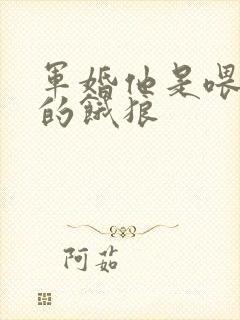 軍婚他是喂
的餓狼
阿茹